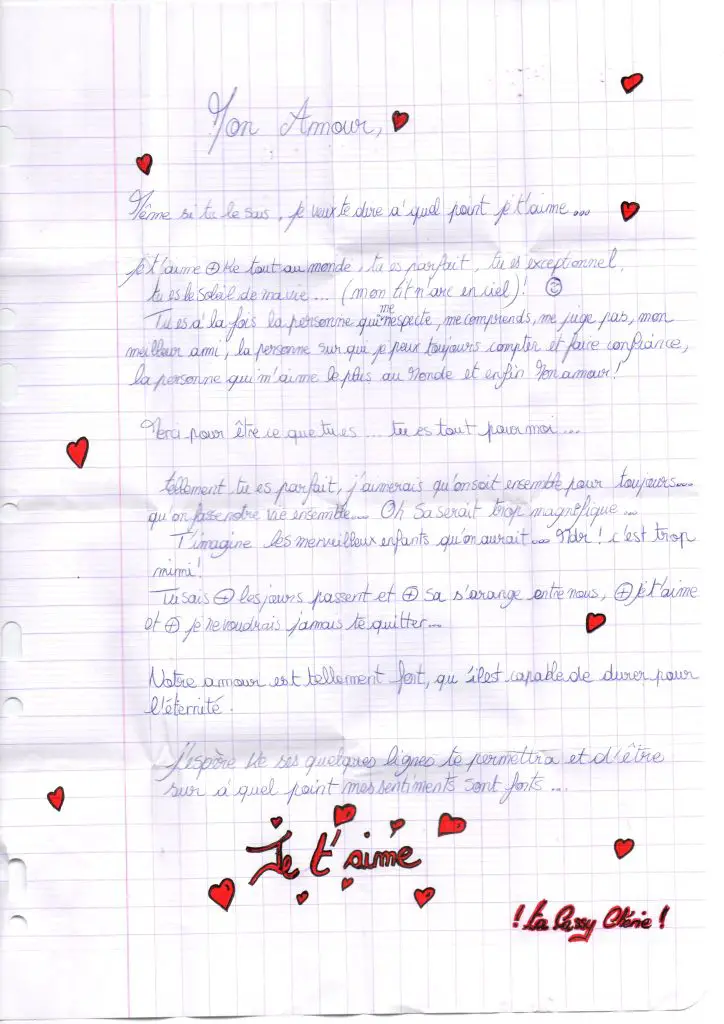 Mon Amour,
Même si tu le sais, je veux te dire à quel point je t'aime...
je t'aime ⊕ Ke tout au monde, tu es parfait, tu es exceptionnel,
tu es le Soleil de ma vie... (mon tit n'arc en ciel)! ☺
Tu es à la fois la personne qui me respecte, me comprends, me juge pas, mon
meilleur ami, la personne sur qui je peux toujours compter et faire confiance,
la personne qui m'aime le plus au Monde et enfin Mon amour!
Merci pour être ce que tu es ... tu es tout pour moi...
tellement tu es parfait, j'aimerais qu'on soit ensemble pour toujours...
qu'on fasse notre vie ensemble... Oh Sa serait trop magnifique...
T'imagine les merveilleux enfants qu'on aurait... Mdr! c'est trop
mimi!
Tu sais ⊕ les jours passent et ⊕ sa s'arange entre nous, ⊕ je t'aime
et ⊕ je ne voudrais jamais te quitter...
Notre amour est tellement fort, qu'il est capable de durer pour
l'éternité.
J'espère Ke ses quelques lignes te permettra et d'être
sur à quel point mes sentiments sont forts...
Je t'aime
! ta Passy Chérie !